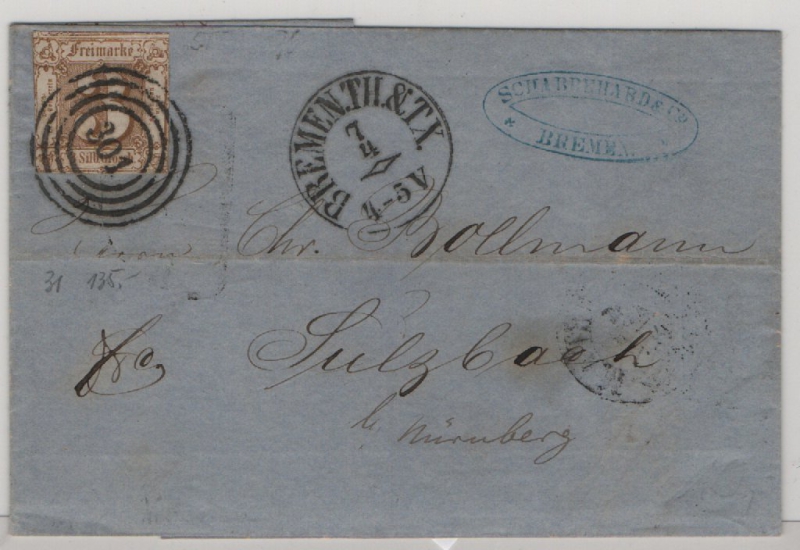 Freimarke
301
BREMEN.TH.&TX.
7
4
4-5 A
SCHABBEHARD & Co
* BREMEN.
Herrn Chr. Bollmann
31 135.-
&c.
Sulzbach
b. Nürnberg